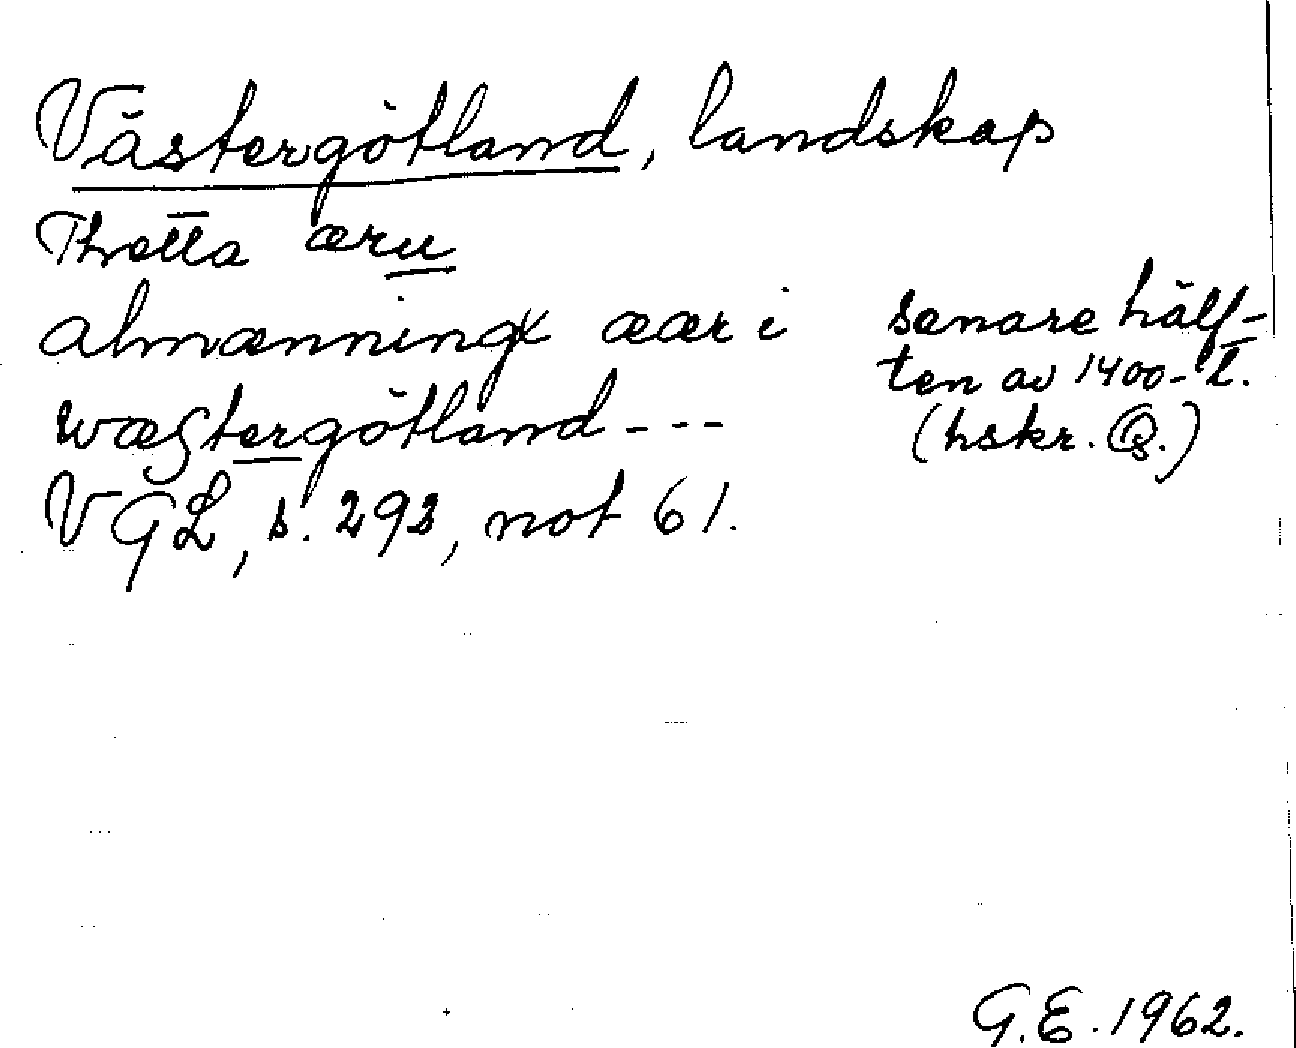 Västergötland, landskap
Thetta æru
almænningx æær i
wæstergötland ---
VGL, s. 293, not 61.
senare hälf-
ten av 1400-t.
(hskr. Q.)
G.E. 1962.